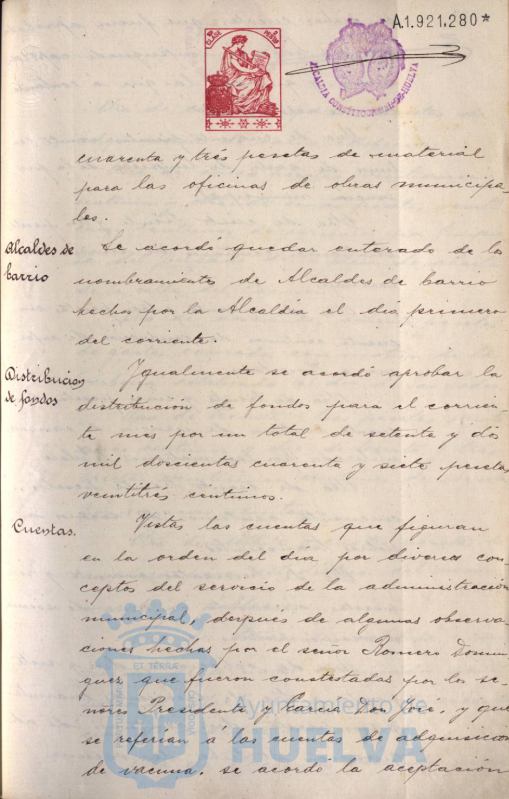 A.1.921.280*
ALCALDIA CONSTITUCIONAL DE HUELVA
cuarenta y tres pesetas de material
para las oficinas de obras municipa-
les.
Alcaldes de
barrio
Se acordó quedar enterado de los
nombramientos de Alcaldes de barrio
hechos por la Alcaldía el día primero
del corriente.
Distribucion
de fondos
Igualmente se acordó aprobar la
distribución de fondos para el corrien-
te mes por un total de setenta y dos
mil doscientas cuarenta y siete pesetas
veintitrés centimos.
Cuentas.
Vistas las cuentas que figuran
en la orden del día por diversos con-
ceptos del servicio de la administración
municipal, después de algunas observa-
ciones hechas por el señor Romero Domin-
guez que fueron constestadas por los se-
ñores Presidente y Garcia Don José, y que
se referían á las cuentas de adquisicion
de vacuna, se acordó la aceptación
Ayuntamiento de
HUELVA